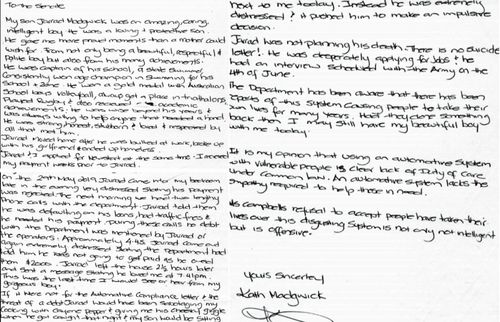 To the Senate
My son Jarad Madgwick was an amazing, caring,
intelligent boy. He was a loving & protective son.
He gave me more proud moments than a mother could
wish for. From not only being a beautiful, respectful &
Polite boy but also from his many achievements.
He was captain of his school, State swimmer
Consistently won age champion in swimming for his
School & Zone. He won a gold medal in the Australian
School boys Volleyball, always gets a place in triathalons.
Played Rugby & also received academic
achievements. He was wise beyond his years &
was always willing to help anyone that needed a hand.
He was strong, honest, stubborn & loved & respected by
all that met him.
Jarad
with his girlfriend & ended up homeless.
Jarad & I applied for Newstart at the same time. I received
my payment weeks prior to Jarad.
On the 30th May 2019 Jarad came into my bedroom
late in the evening very distressed stating his payment
was rejected. The next morning he had two lengthy
Phone calls with the department. Jarad told them
he was defaulting on his loans, had traffic fines &
he needed his payment. During these calls no debt
with the Department was mentioned by Jarad or
the operators. Approximately 4.45 Jarad came out
again extremely distressed stating the Department had
told him he was not going to get paid as he owed
them $2000. Jarad left the house 2½ hours later
and sent a message stating he loved me at 7.41pm.
This was the last time I would see or hear from my
gorgeous boy.
If it were not for the Automative Compliance letter & the
threat of a debt Jarad would have been sabotaging my
cooking with cayenne pepper & giving me his cheeky giggle
when he got caught that night & my son would be sitting
next to me today. Instead he was extremely
distressed & it pushed him to make an impulsive
decision.
Jarad was not planning his death. There is no suicide
letter. He was desperately applying for jobs & he
had an interview scheduled with the Army on the
4th of June.
The Department has been aware that there has been
reports of this system causing people to take their
own lives for many years. Had they done something
back then I may still have my beautiful boy
with me today.
It is my opinion that using an automative system
with vulnerable people is clear lack of duty of care
under common law. An automative system lacks the
empathy required to help those in need.
Ms Campbells refusal to accept people have taken their
lives over this disgusting system is not only not intelligent
but is offensive.
Yours Sincerley
Kath Madgwick